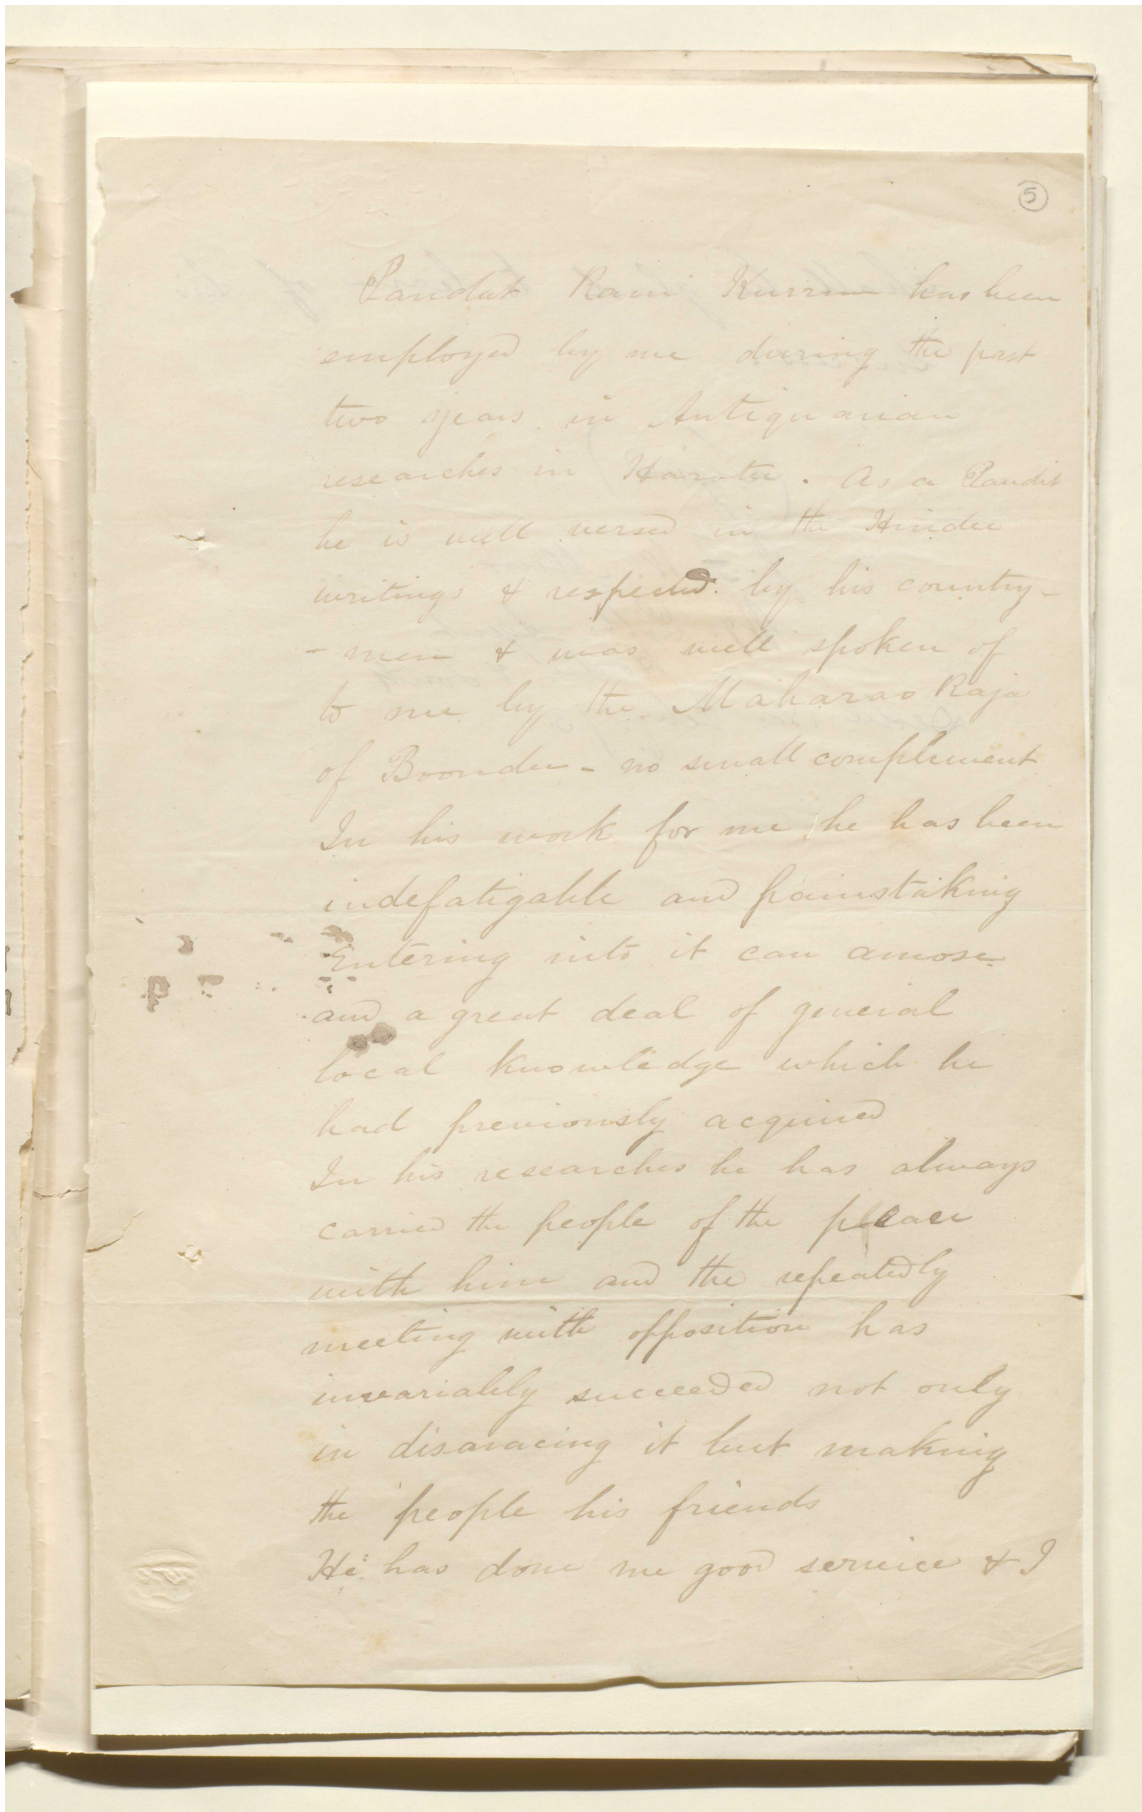 5
Pandat Ram Kurrun has been
employed by me during the past
two years in Antiquarian
researches in Harotee. As a Pandit
he is well versed in the Hindee
writings & respected by his country-
- men & was well spoken of
to me by the Maharao Raja
of Boondee - no small complement
In his work for me he has been
indefatigable and painstaking
Entering into it con amore
and a great deal of general
local knowledge which he
had previously acquired
In his researches he has always
carried the people of the place
with him and the repeatedly
meeting with opposition has
invariably succeeded not only
in disaracing it but making
the people his friends
He has done me good service & I